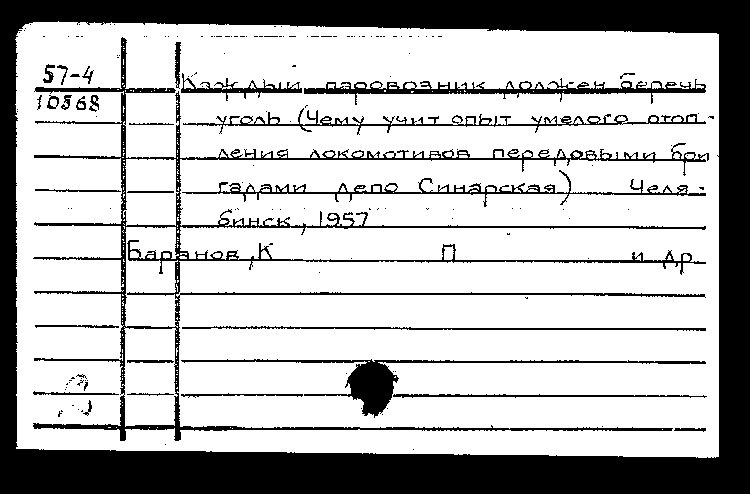 57-4
10568
Каждый паровозник должен беречь
уголь (Чему учит опыт умелого отоп-
ления локомотивов передовыми бри
гадами депо Синарская) Челя-
бинск, 1957
Баранов, К П и др.